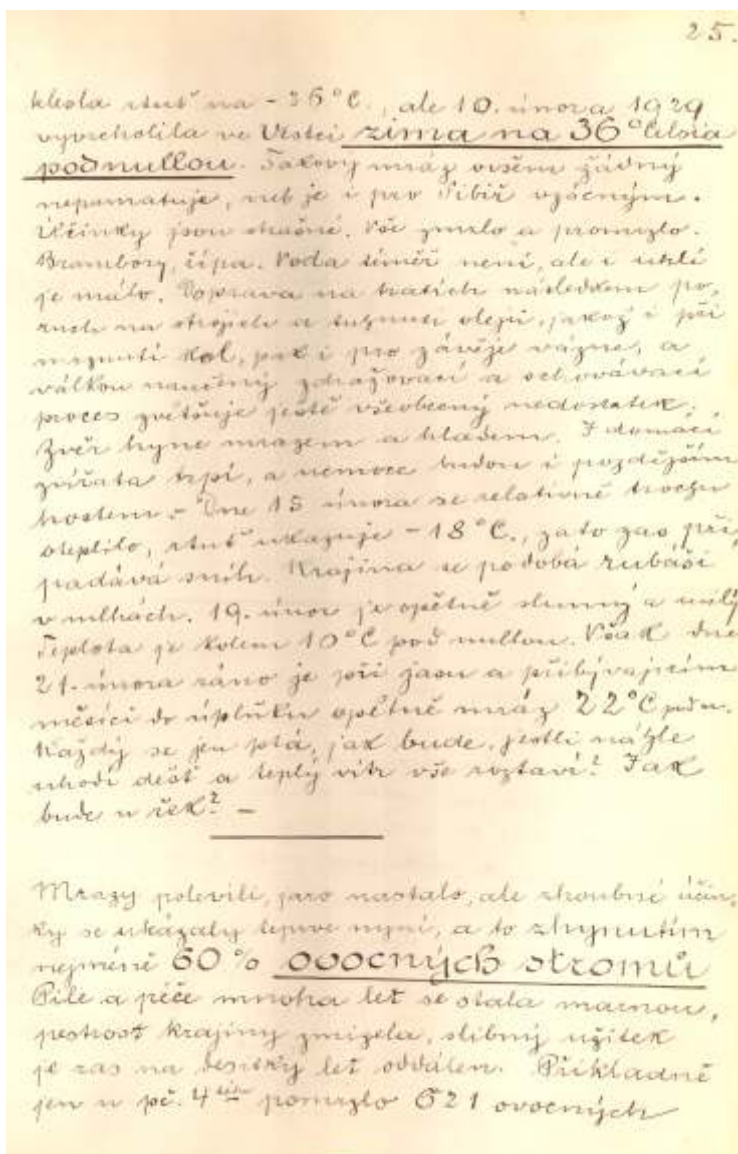 25.
klesla rtuť na -26°C., ale 10. února 1929
vyvrcholila ve Vestci zima na 36° Celsia
pod nullou. Takový mráz ovšem žádný
nepamatuje, neb je i pro Sibiř vzácným.
Účinky jsou strašné. Vše zmrzlo a promrzlo.
Brambory, řípa. Voda téměř není, ale i uhlí
je málo. Doprava na tratích následkem po-
ruch na strojích a tuhnutí olejů, jakož i při
mrznutí kol, pak i pro závěje vázne, a
válkou naučený zdražovací a schovávací
proces zvětšuje ještě všeobecný nedostatek.
Zvěř hyne mrazem a hladem. I domácí
zvířata trpí, a nemoce budou i pozdějším
hostem. - Dne 15. února se relativně trochu
oteplilo, rtuť ukazuje -18°C., za to zas při-
padává sníh. Krajina se podobá rubáši
v mlhách. 19. únor je opětně slunný a milý
Teplota je kolem 10°C pod nullou. Však dne
21. února ráno je při jasu a přibývajícím
měsíci do úplňku opětně mráz 22°C pod n.
Každý se jen ptá, jak bude, jestli náhle
uhodí déšť a teplý vítr vše roztaví? Jak
bude u řek? —
Mrazy polevili, jaro nastalo, ale zhoubné účin-
ky se ukázaly teprve nyní, a to zhynutím
nejméně 60% ovocných stromů
Píle a péče mnoha let se stala marnou,
pestrost krajiny zmizela, slibný užitek
je zas na desítky let oddálen. Příkladně
jen u pč. 4 pomrzlo 621 ovocných